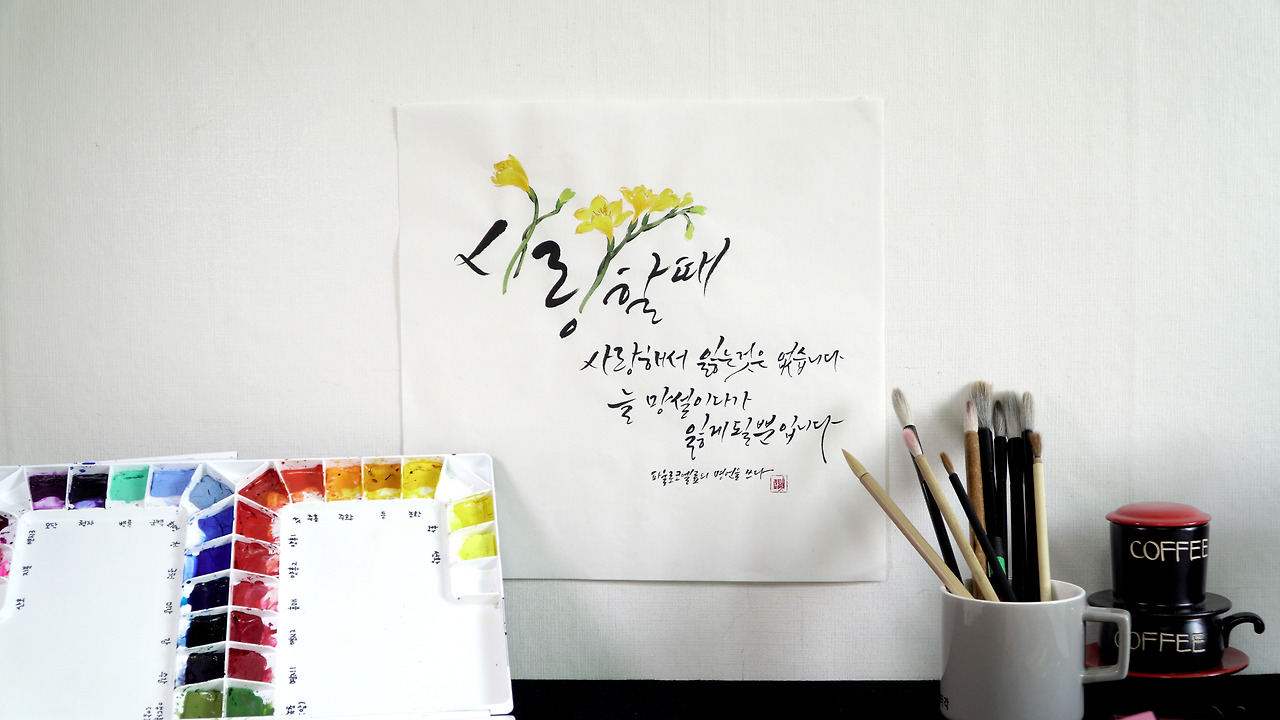 사랑할때
사랑해서 잃는것은 없습니다
늘 망설이다가
잃게 될뿐입니다
파울로코엘료의 명언을 쓰다
COFFEE
COFFEE